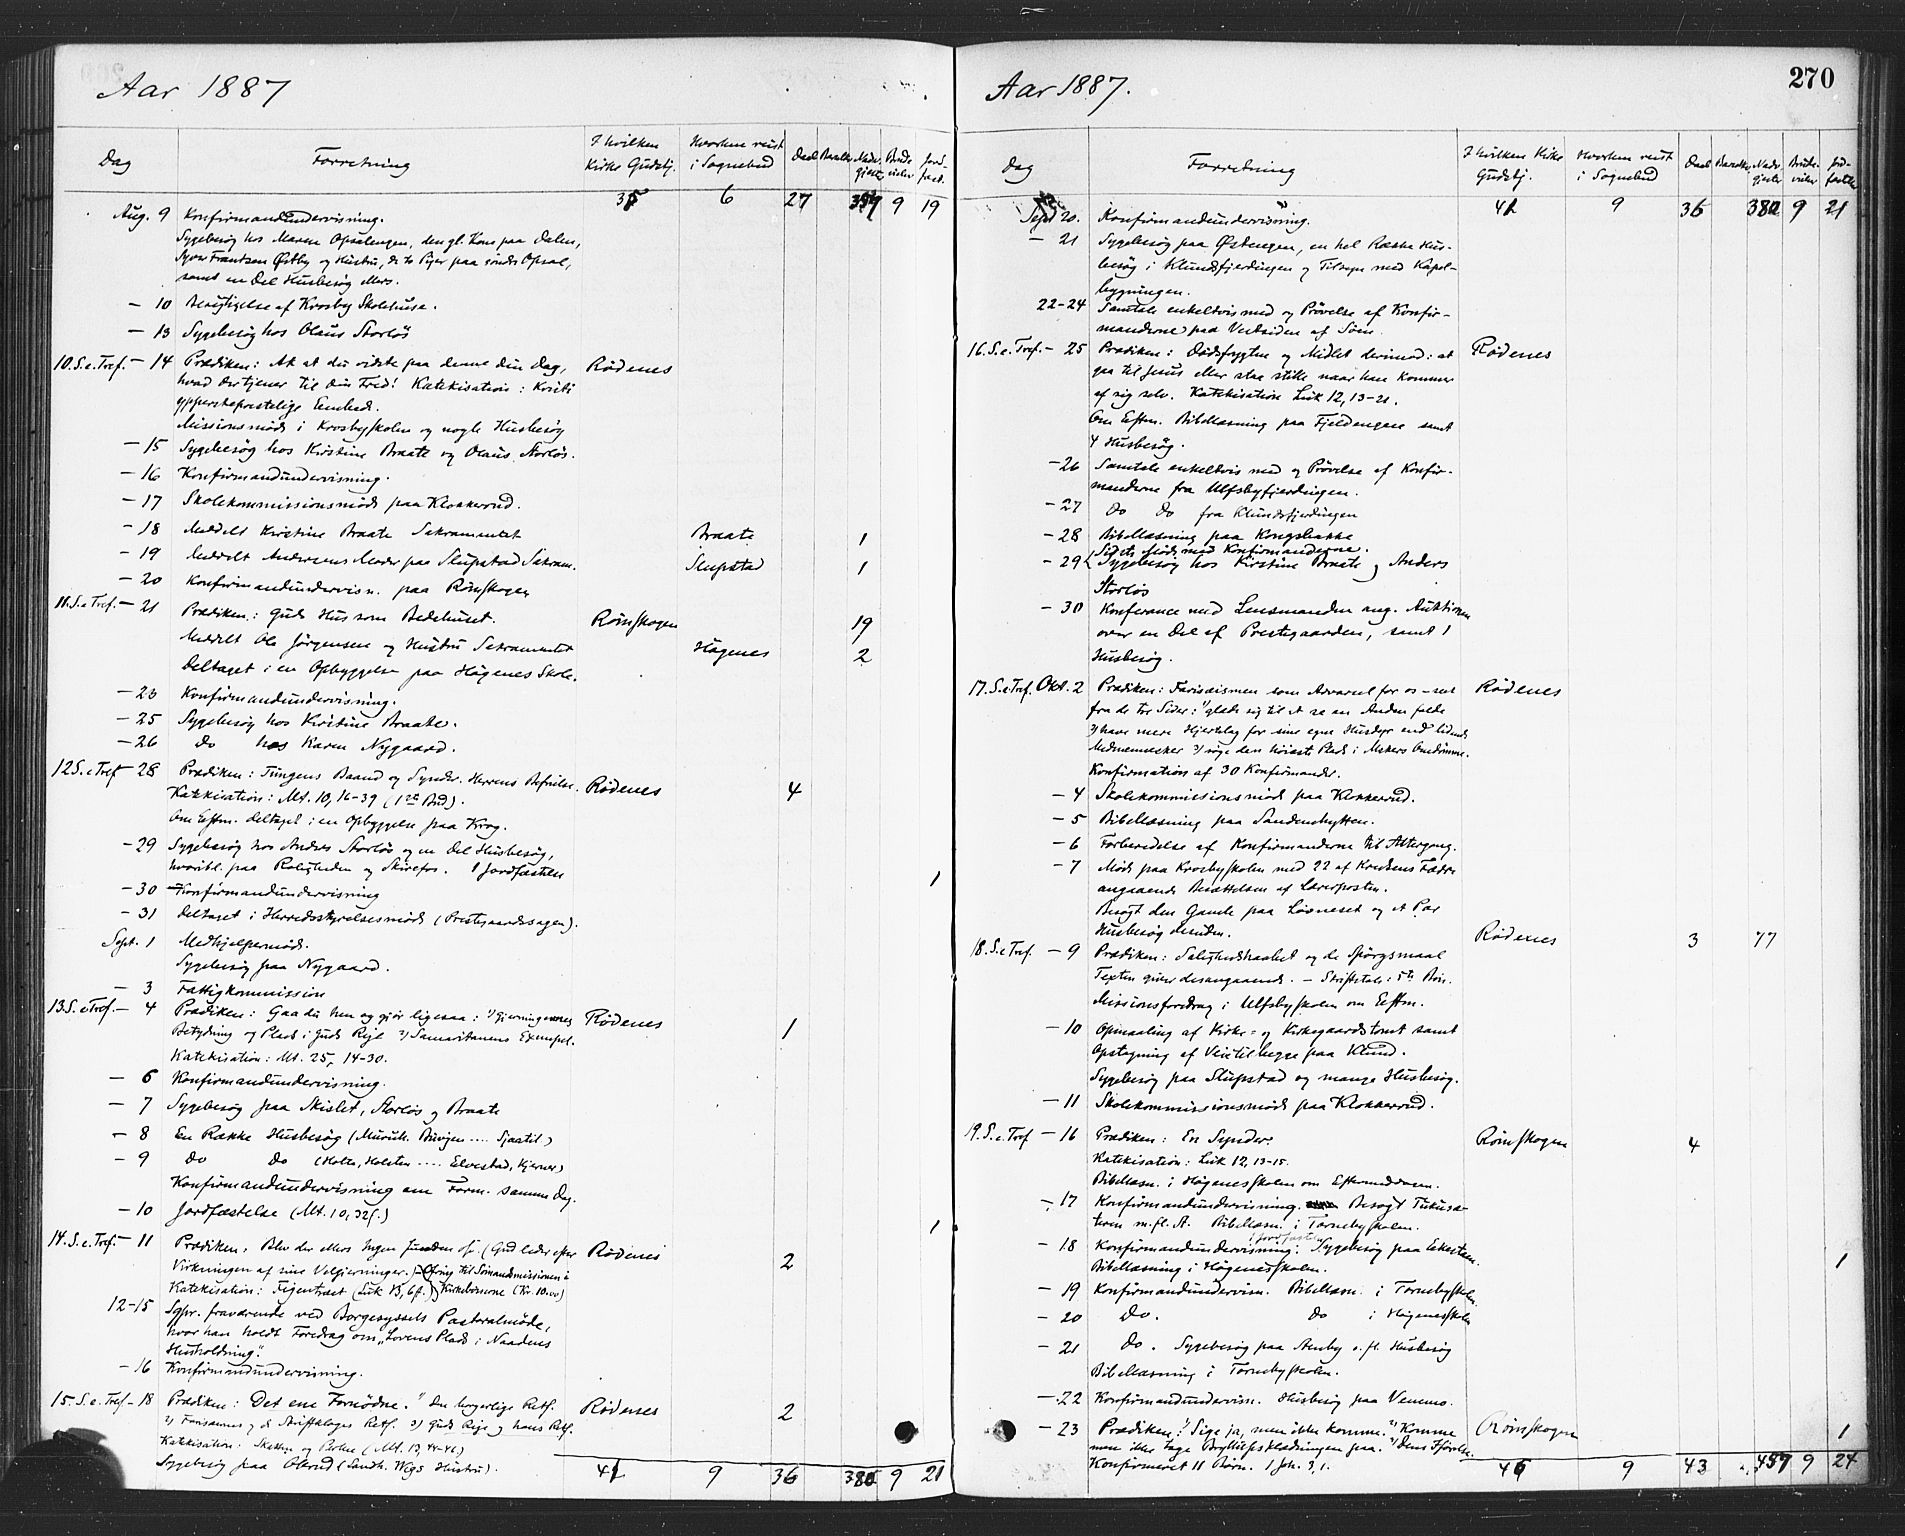 Aar 1887
Dag Forretning I hvilken Kirke Gudstj. Hvorhen reist i Sognebud Daab Nadv. gjester Brude vielser Jord fæst.
6 27 9 19
Aug. 9 Konfirmandundervisning.
Sygebesøg hos Maren Opsalengen, den gl. Kone paa Dalen,
Frantzen Østby og Hustru, de to Piger paa søndre Opsal,
samt en Del Husbesøg ellers.
— 10 Besigtigelse af Krosby Skolehuse.
— 13 Sygebesøg hos Olaus Storløs
10. S. e. Tref. — 14 Prædiken: Ak at du vidste paa denne din Dag, Rødenes
hvad der tjener til din Fred! Katekisation: Kristi
ypperstepræstelige Embed.
Missionsmøde i Krosbyskolen og nogle Husbesøg
— 15 Sygebesøg hos Kirstine Braate og Olaus Storløs.
— 16 Konfirmandundervisning.
— 17 Skolekommissionsmøde paa Klokkerud.
— 18 Meddelt Kirstine Braate Sakramentet Braate 1
— 19 Meddelt Andreas Moder paa Slupstad Sakram. Slupstad 1
— 20 Konfirmandundervisn. paa Rømskogen
11. S. e. Tref. — 21 Prædiken: Guds Hus som Bedehuset. Rømskogen 19
Meddelt Ole Jørgensen og Hustru Sakramentet Høgenes 2
Deltaget i en Opbyggelse paa Høgenes Skole.
— 23 Konfirmandundervisning.
— 25 Sygebesøg hos Kirstine Braate.
— 26 Do hos Karen Nygaard.
12 S. e. Tref — 28 Prædiken: Tungens Baand og Synder. Herrens Befrielse. Rødenes 4
Katekisation: Mt. 10, 16-39 (1ste Bud).
Om Eftm. deltaget i en Opbyggelse paa Krog.
— 29 Sygebesøg hos Anders Storløs og en Del Husbesøg,
hvoribl. paa Roligheden og Skirefos. 1 Jordfæstelse 1
— 30 Konfirmandundervisning
— 31 Deltaget i Herredsstyrelsesmøde (Prestegaardssagen).
Sept. 1 Medhjelpermøde.
Sygebesøg paa Nygaard.
— 3 Fattigkommission
13. S. e. Tref. — 4 Prædiken: Gaa du hen og gjør ligesaa: 1) Gjerningernes Rødenes 1
Betydning og Plads i Guds Rige 2) Samaritanens Exempel.
Katekisation: Mt. 25, 14-30.
— 6 Konfirmandundervisning.
— 7 Sygebesøg paa Skislet, Storløs og Braate
— 8 En Række Husbesøg (Buvgen .... Sjaatil)
— 9 Do Do (Holte, Holsten .... Elvestad, Kjerner)
Konfirmandundervisning om Form. samme Dag.
— 10 Jordfæstelse (Mt. 10, 32f.) 1
14. S. e. Tref. — 11 Prædiken: Blev der ellers Ingen funden osv. (Gud leder efter Rødenes 2
Virkningen af sine Velgjerninger.) Ofring til Sømandsmissionen i
Katekisation: Figentræet (Luk 13, 6f.) Kirkebøsserne (Kr. 10.00)
12-15 Sgpr. fraværende ved Borgesyssels Pastoralmøde,
hvor han holdt Foredrag om „Lovens Plads i Naadens
Husholdning".
— 16 Konfirmandundervisning.
15. S. e. Tref. — 18 Prædiken: Det ene Fornødne. 1) Den borgerlige Retf. Rødenes 2
2) Farisæernes og de Skriftkloges Retf. 3) Guds Rige og hans Retf.
Katekisation: Skatten og Perlen (Mt. 13, 44-46.)
Sygebesøg paa Olerud (Hustru).
41 9 36 9 21
Aar 1887.
270
Dag Forretning I hvilken Kirke Gudstj. Hvorhen reist i Sognebud Daab Nadv. gjester Brude vielser Jord fæstelser
41 9 36 9 21
Sept 20. Konfirmandundervisning.
— 21 Sygebesøg paa Østengen, en hel Række Hus-
besøg i Klundsfjerdingen og Tilsyn med Kapel-
bygningen.
22-24 Samtale enkeltvis med og Prøvelse af Konfir-
manderne paa Vestsiden af Søen.
16. S. e. Tref. — 25 Prædiken: Dødsfrygten og Midlet derimod: at Rødenes
gaa til Jesus eller staa stille naar han kommer
af sig selv. Katekisation Luk 12, 13-21.
Om Eftm. Bibellæsning paa Fjeldengen samt
4 Husbesøg.
— 26 Samtale enkeltvis med og Prøvelse af Konfir-
manderne fra Ulfsbyfjerdingen.
— 27 Do Do fra Klundsfjerdingen
— 28 Bibellæsning paa Kongsbakke
Sidste Møde med Konfirmanderne.
— 29 Sygebesøg hos Kirstine Braate og Anders
Storløs
— 30 Konferance med Lensmanden ang. Auktionen
over en Del af Prestegaarden, samt 1
Husbesøg.
17. S. e. Tref. Okt. 2 Prædiken: Farisæismen som Advarsel for os – set Rødenes
fra de tre Sider: 1) glæde sig til at se en Anden falde
2) have mere Hjertelag for sine egne Husdyr end lidende
Medmennesker 3) søge den høieste Plads i Andres Omdømme.
Konfirmation af 30 Konfirmander.
— 4 Skolekommissionsmøde paa Klokkerud.
— 5 Bibellæsning paa Sandenebytten.
— 6 Forberedelse af Konfirmanderne til Altergang.
— 7 Møde paa Krosbyskolen med 22 af Kredsens Fædre
angaaende Besættelsen af Lærerposten.
Besøgt den Gamle paa Løvneset og et Par
Husbesøg desuden.
18. S. e. Tref. — 9 Prædiken: Salighedshaabet og de Spørgsmaal Rødenes 3 77
Texten giver desangaaende. – Skriftetale: 5te Bøn.
Missionsforedrag i Ulfsbyskolen om Eftm.
— 10 Opmaaling af Kirke- og Kirkegaardstomt samt
Opstegning af Veie til begge paa Klund.
Sygebesøg paa Slupstad og mange Husbesøg.
— 11 Skolekommissionsmøde paa Klokkerud.
19. S. e. Tref — 16 Prædiken: En Synder. Rømskogen 4
Katekisation: Luk 12, 13-15.
Bibellæsn. i Høgenesskolen om Eftermiddagen.
— 17 Konfirmandundervisning. Besøgt Tukuse-
teren m. fl. St. Bibellæsn. i Tørnebyskolen.
— 18 Konfirmandundervisning. 1 Jordfæstelse Sygebesøg paa Eksteen. 1
Bibellæsning i Høgenesskolen.
— 19 Konfirmandundervisn. Bibellæsn. i Tørnebyskolen.
— 20 Do. Do i Høgenesskolen
— 21 Do. Sygebesøg paa Aneby o. fl. Husbesøg
Bibellæsning i Tørnebyskolen.
— 22 Konfirmandundervisn. Husbesøg paa Vemmo.
— 23 Prædiken: 1) Sige ja, men ikke komme. 2) Komme Rømskogen 1
men ikke tage Bryllupsklædningen paa. 3)
Konfirmeret 11 Børn. 1 Joh. 3, 1.
9 43 457 9 24